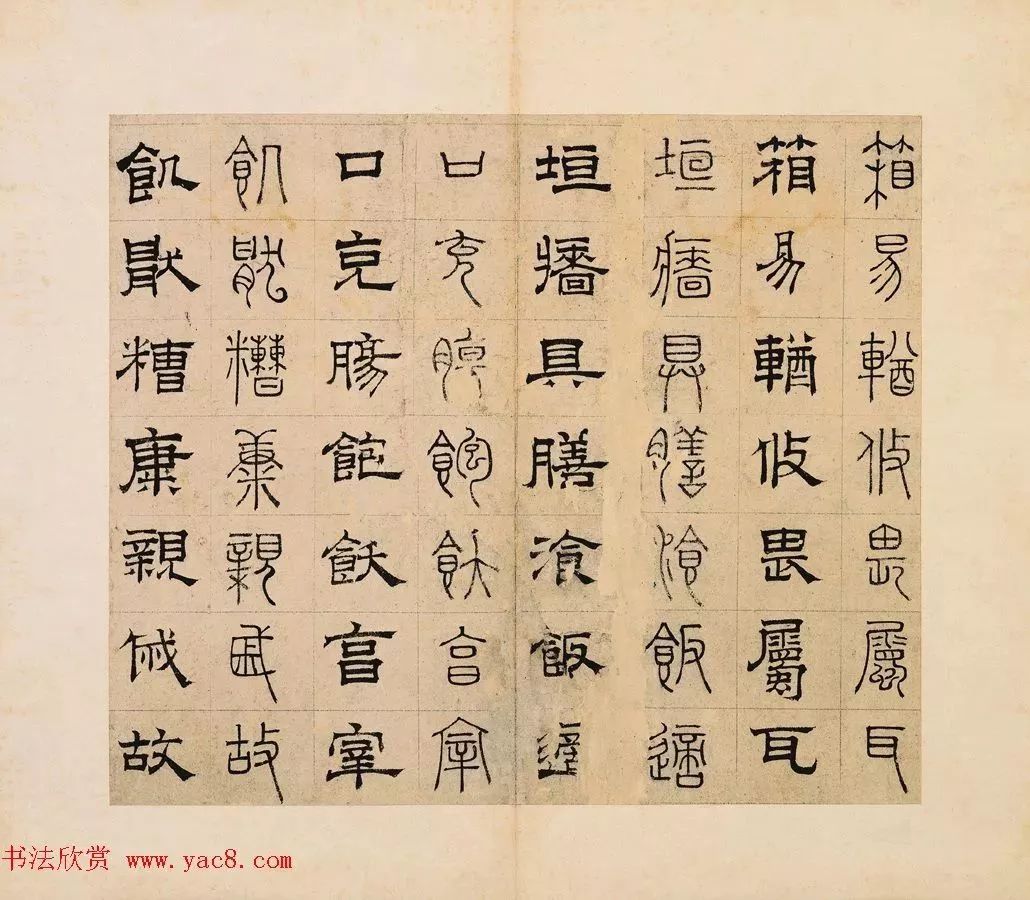 箱易輶攸畏屬耳
箱易輶攸畏屬耳
垣牆具膳湌飯適
垣牆具膳湌飯適
口充腸飽飫享宰
口充腸飽飫享宰
飢猒糟康親戚故
飢猒糟康親戚故
书法欣赏 www.yac8.com